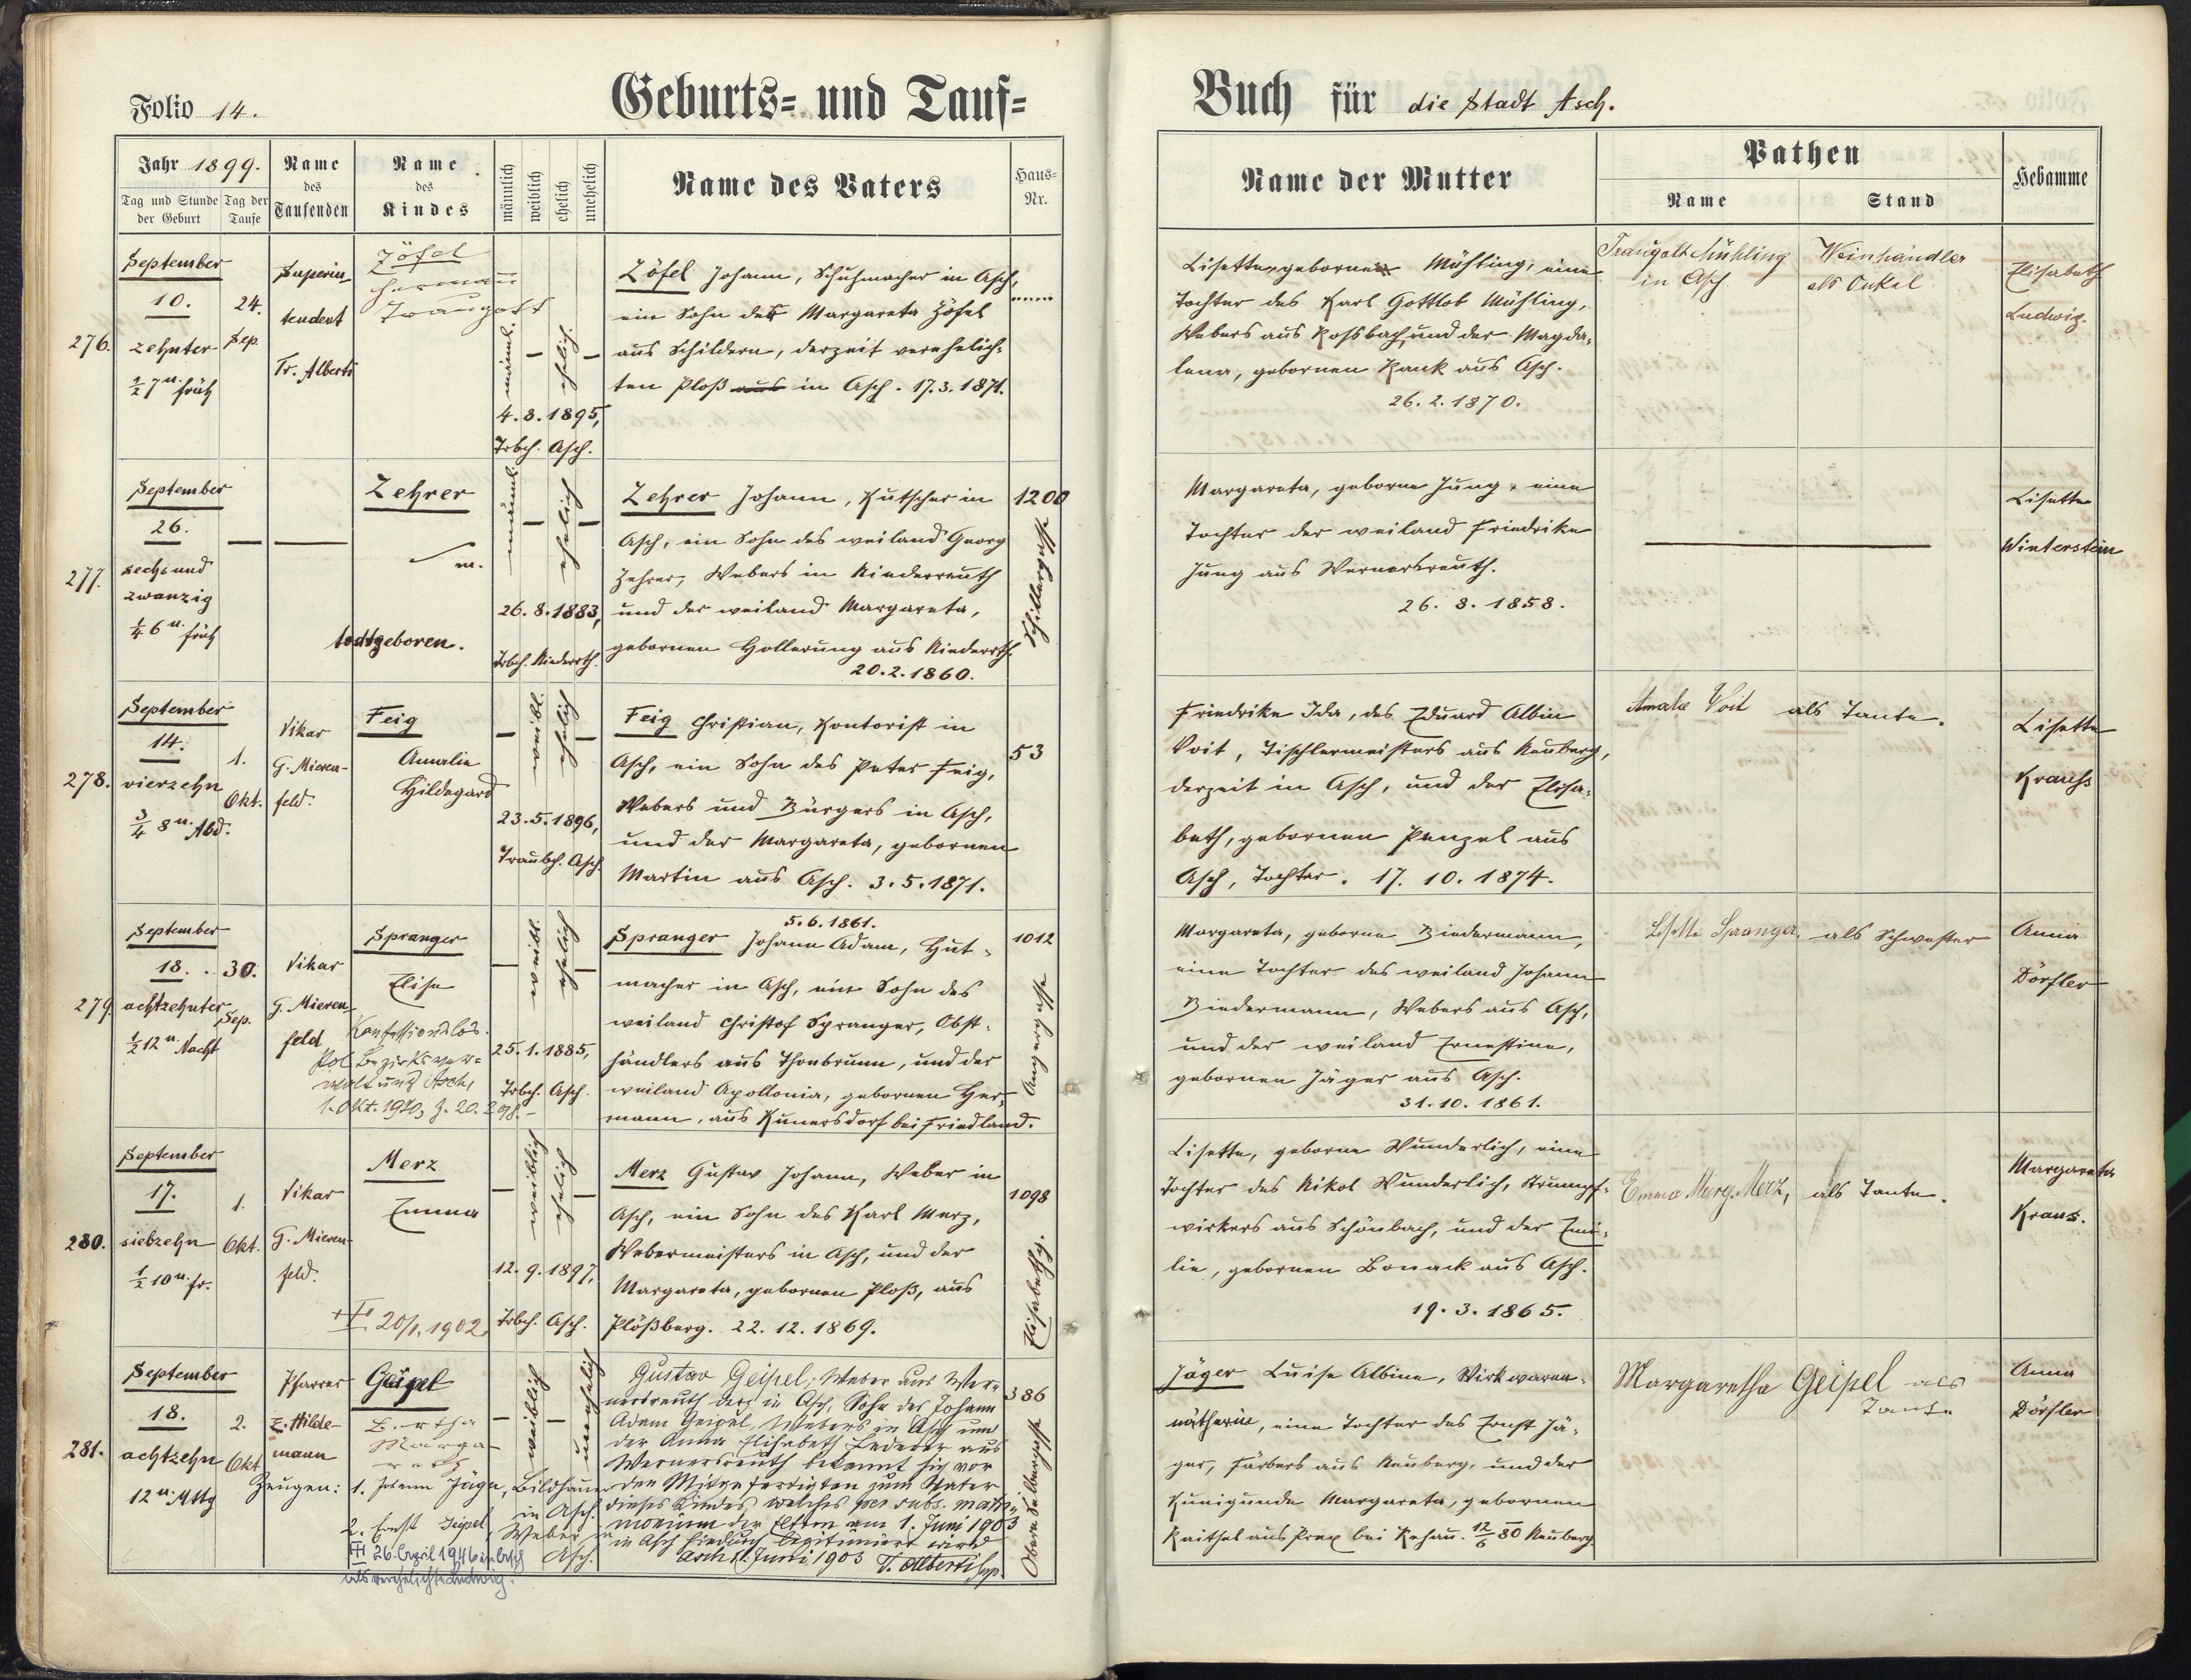 Folio 14.
Geburts- und Tauf-
Buch für die Stadt Asch.
Jahr 1899.
Tag und Stunde der Geburt
Tag der Taufe
Name des Taufenden
Name des Kindes
männlich
weiblich
ehelich
unehelich
Name des Vaters
Haus-Nr.
Name der Mutter
Pathen
Name
Stand
Hebamme
276.
September
10.
zehnter
½ 7 u. früh
24.
Sep.
Superin-
tendent
Tr. Alberti
Zöfel
Hermann
Traugott
männl.
–
ehelich.
–
4.8.1895,
Trbch. Asch.
Zöfel Johann, Schuhmacher in Asch,
ein Sohn der Margareta Zöfel
aus Schildern, derzeit verehelich-
ten Ploß aus in Asch. 17.3.1871.
Lisette, geborne Mühling, eine
Tochter des Karl Gottlob Mühling,
Webers aus Roßbach, und der Magda-
lena, gebornen Rank aus Asch.
26.2.1870.
Traugott Mühling
in Asch
Weinhändler
als Onkel
Elisabeth
Ludwig.
277.
September
26.
sechs und
zwanzig
¼ 6 u. früh
Zehrer
m.
todtgeboren.
männl.
–
ehelich
–
26.8.1883,
Trbch. Niederrth.
Zehrer Johann, Kutscher in
Asch, ein Sohn des weiland Georg
Zehrer, Webers in Niederreuth
und der weiland Margareta,
gebornen Hollerung aus Niederrth.
20.2.1860.
1200
Schillergasse
Margareta, geborne Jung, eine
Tochter der weiland Friedrike
Jung aus Wernersreuth.
26.8.1858.
Lisette
Winterstein
278.
September
14.
vierzehn
¾ 8 u. Abd.
1.
Okt.
Vikar
G. Mieren-
feld.
Feig
Amalie
Hildegard
–
weibl.
ehelich
–
23.5.1896,
Traubch. Asch.
Feig Christian, Kontorist in
Asch, ein Sohn des Peter Feig,
Webers und Bürgers in Asch,
und der Margareta, gebornen
Martin aus Asch. 3.5.1871.
53
Friedrike Ida, des Eduard Albin
Voit, Tischlermeisters aus Neuberg,
derzeit in Asch, und der Elisa-
beth, gebornen Penzel aus
Asch, Tochter. 17.10.1874.
Amalie Voit
als Tante.
Lisette
Krauß
279.
September
18.
achtzehnter
½ 12 u. Nacht
30.
Sep.
Vikar
G. Mieren-
feld
Spranger
Elise
Konfessionslos.
Pol. Bezirksver-
waltung Asch,
1. Okt. 1920, Z. 20.298.-
–
weibl.
ehelich
–
25.1.1885,
Trbch. Asch.
5.6.1861.
Spranger Johann Adam, Hut-
macher in Asch, ein Sohn des
weiland Christof Spranger, Obst-
händlers aus Thonbrunn, und der
weiland Apollonia, gebornen Her-
mann, aus Kunersdorf bei Friedland.
1012
Angergasse
Margareta, geborne Biedermann,
eine Tochter des weiland Johann
Biedermann, Webers aus Asch,
und der weiland Ernestine,
gebornen Jäger aus Asch.
31.10.1861.
Lisette Spranger,
als Schwester
Anna
Dörfler
280.
September
17.
siebzehn
½ 10 u. fr.
1.
Okt.
Vikar
G. Mieren-
feld.
Merz
Emma
20/1. 1902.
–
weiblich
ehelich
–
12.9.1897,
Trbch. Asch.
Merz Gustav Johann, Weber in
Asch, ein Sohn des Karl Merz,
Webermeisters in Asch, und der
Margareta, gebornen Ploß, aus
Plößberg. 22.12.1869.
1098
Elisabethg.
Lisette, geborne Wunderlich, eine
Tochter des Nikol Wunderlich, Strumpf-
wirkers aus Schönbach, und der Emi-
lie, gebornen Bonack aus Asch.
19.3.1865.
Emma Marg. Merz,
als Tante.
Margareta
Kraus.
281.
September
18.
achtzehn
12 u. Mttg
2.
Okt
Pfarrer
E. Hilde-
mann
Geipel
Bertha
Marga-
reth
–
weiblich
–
unehelich
Zeugen: 1. Johann Jäger, Bildhauer
in Asch.
2. Ernst Geipel Weber in
Asch.
26. April 1946 in Asch
als verehelichte Ludwig.
Gustav Geipel, Weber aus Wer-
nersreuth derz. in Asch, Sohn des Johann
Adam Geipel, Webers in Asch und
der Anna Elisabeth Lederer aus
Wernersreuth bekennt sich vor
den Mitgefertigten zum Vater
dieses Kindes welches per subs. matri-
monium der Eltern am 1. Juni 1903
in Asch hiedurch legitimiert wird
Asch 1. Juni 1903 T. Alberti Sup.
386
Obere Selbergasse
Jäger Luise Albine, Wirkwaren-
nätherin, eine Tochter des Ernst Jä-
ger, Färbers aus Neuberg, und der
Kunigunde Margareta, gebornen
Raithel aus Prex bei Rehau. 12/6 80 Neuberg.
Margaretha Geipel als
Tante
Anna
Dörfler